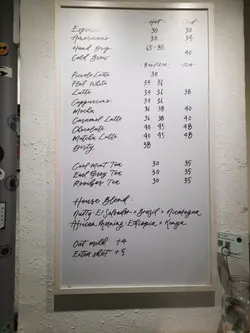 - Hot - - Iced -
Espresso 30 30
Americano 30 35
Hand Drip 65-85
Cold Brew 40
8oz/12oz 12oz
Piccolo Latte 30
Flat White 34 36
Latte 34 36 38
Cappuccino 34 36
Mocha 38 38 40
Caramel Latte 40 43 48
Chocolate 40 45 48
Matcha Latte 40 45 48
Dirty 38
Cool Mint Tea 30 35
Earl Grey Tea 30 35
Rooibos Tea 30 35
House Blend:
Nutty: El Salvador × Brazil × Nicaragua
African Morning: Ethiopia × Kenya
Oat milk +4
Extra shot +5